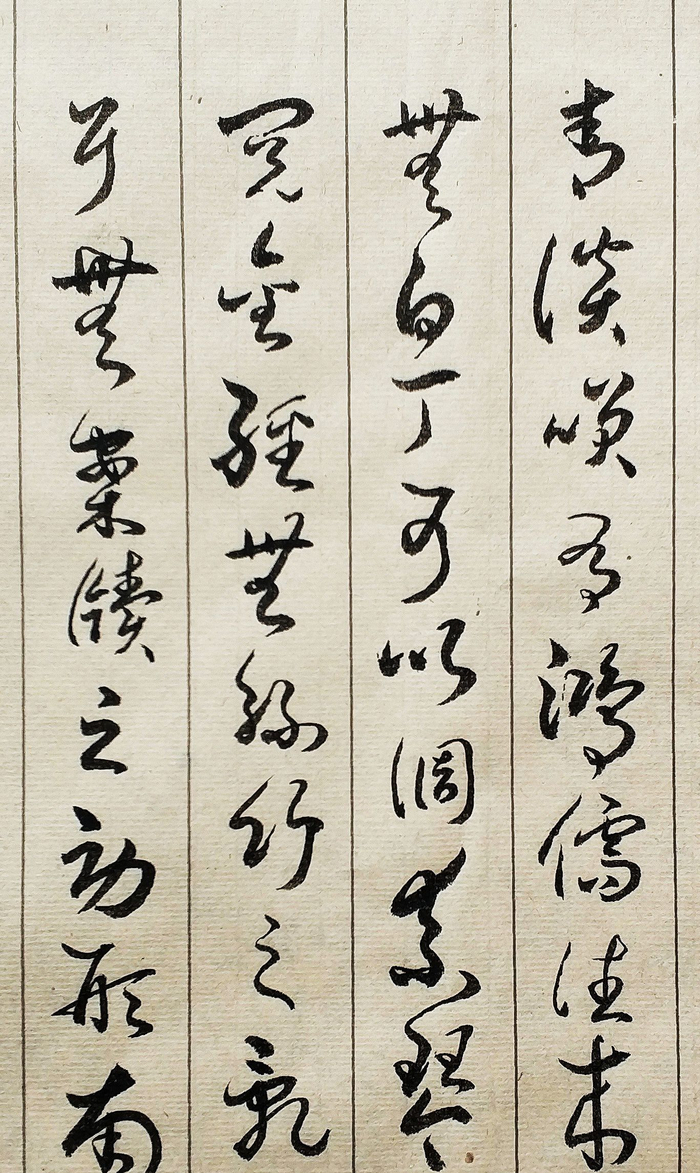 青談咲有鴻儒往来
無白丁可以調素琴
閱金經無絲竹之亂
耳無案牘之勞形南